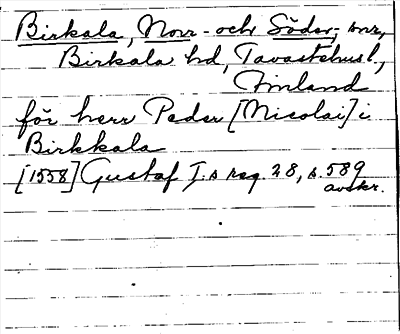 Birkala, Norr- och Söder-, snr,
Birkala hd, Tavastehusl.,
Finland
för herr Peder [Nicolai] i
Birkkala
[1558] Gustaf I.s reg. 28, s. 589
avskr.